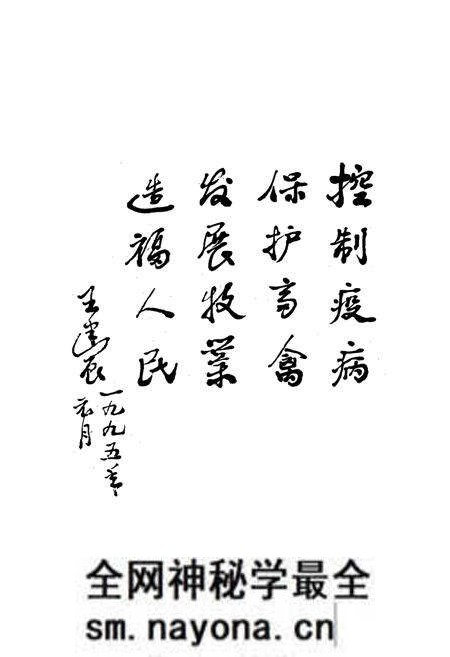 控制疫病
保护畜禽
发展牧业
造福人民
王建辰
一九九五年
元月
全网神秘学最全
sm.nayona.cn